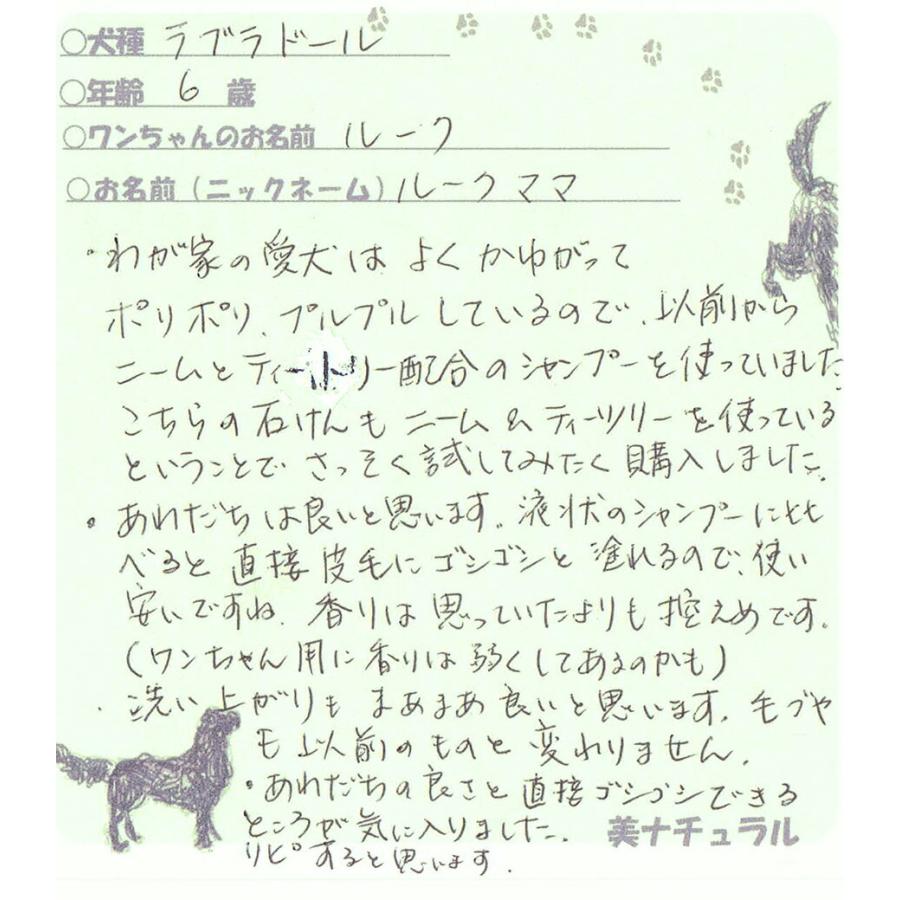 ○犬種 ラブラドール
○年齢 6 歳
○ワンちゃんのお名前 ルーク
○お名前（ニックネーム）ルークママ
・わが家の愛犬は よくかゆがって
ポリポリ、プルプルしているので、以前から
ニームとティートリー配合のシャンプーを使っていました
こちらの石けんもニーム&ティーツリーを使っている
ということで さっそく試してみたく購入しました。
・あわだちは良いと思います。液状のシャンプーにくら
べると直接皮毛にゴシゴシと塗れるので、使い
安いですね。香りは思っていたよりも控えめです。
(ワンちゃん用に香りは弱くしてあるのかも)
・洗い上がりもまあまあ良いと思います。毛ヅヤ
も以前のものと変わりません。
・あわだちの良さと直接ゴシゴシできる
ところが気に入りました。
リピすると思います.
美ナチュラル